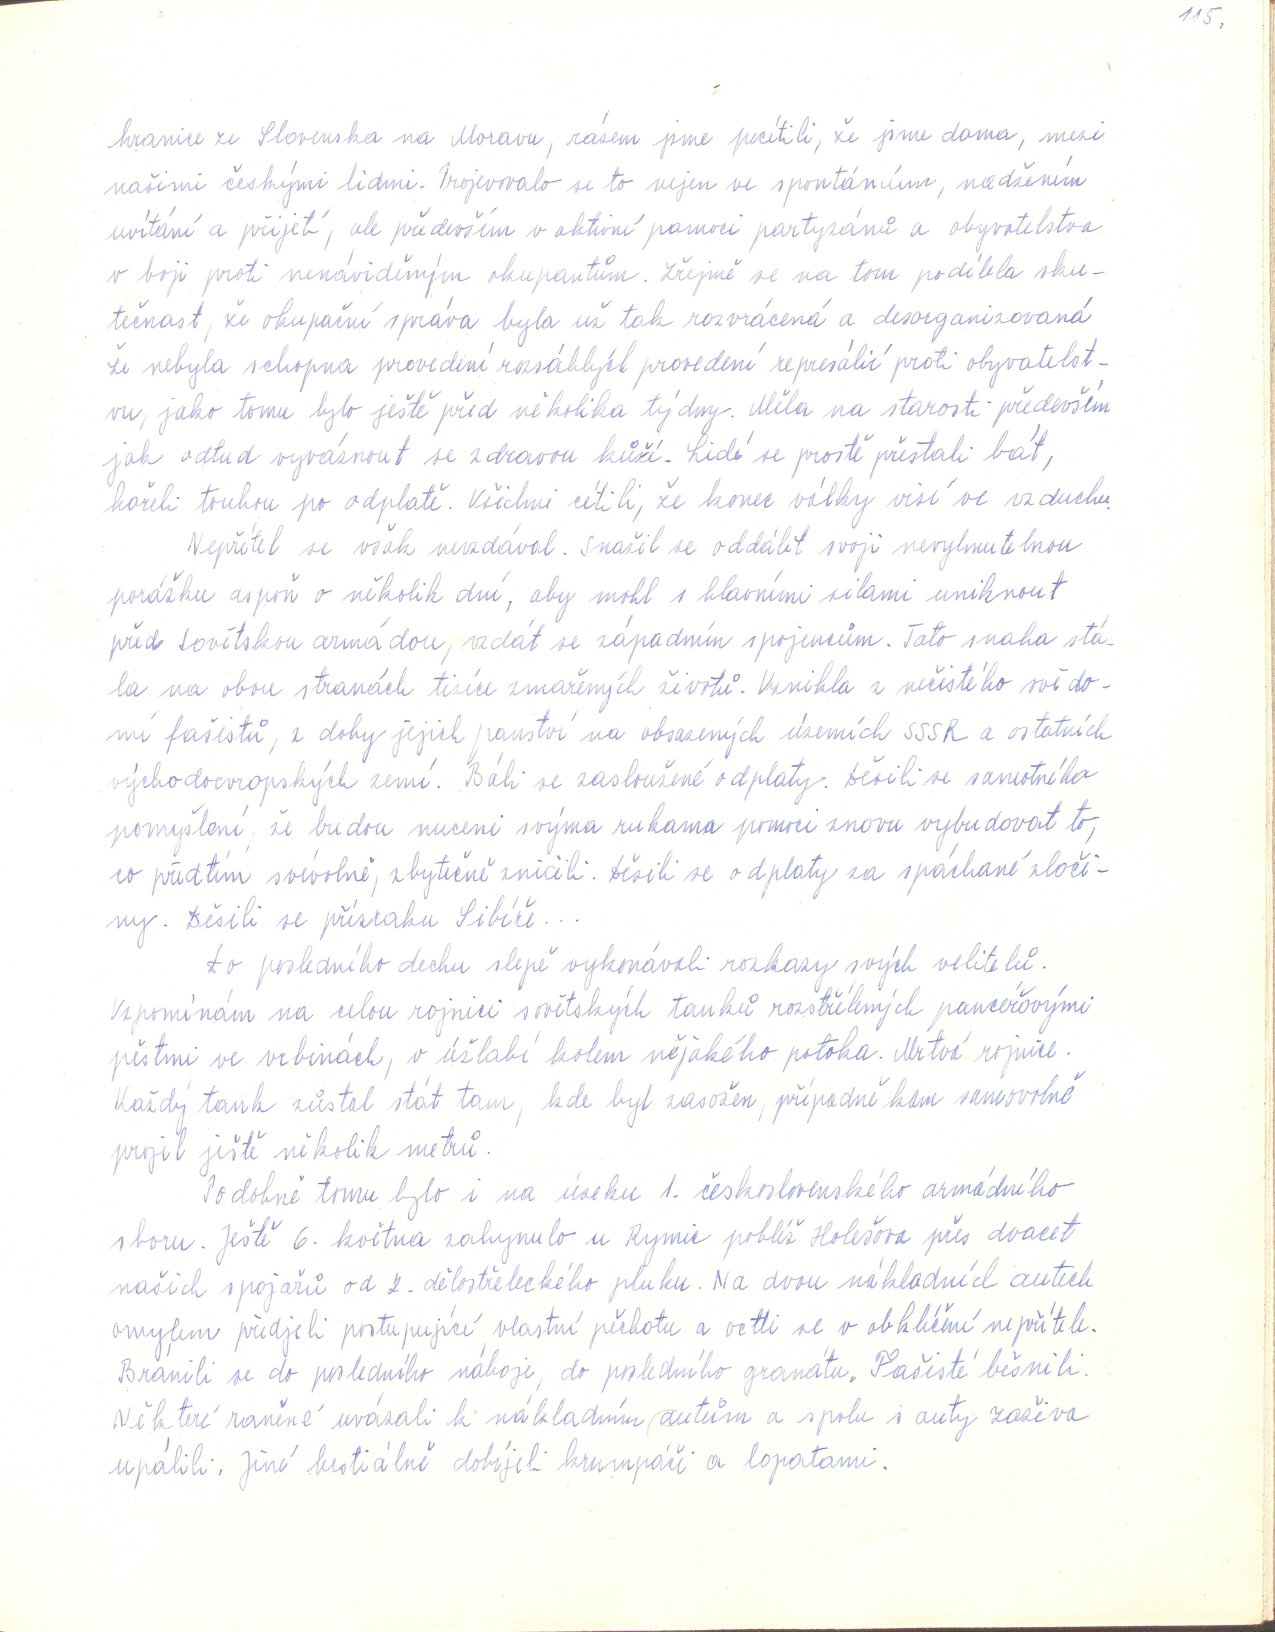 115.
hranice ze Slovenska na Moravu, rázem jsme pocítili, že jsme doma, mezi
našimi českými lidmi. Projevovalo se to nejen ve spontánním, nadšeném
uvítání a přijetí, ale především v aktivní pomoci partyzánů a obyvatelstva
v boji proti nenáviděným okupantům. Zřejmě se na tom podílela sku-
tečnost, že okupační správa byla už tak rozvrácená a desorganizovaná
že nebyla schopna provedení rozsáhlých provedení represálií proti obyvatelst-
vu, jako tomu bylo ještě před několika týdny. Měla na starosti především
jak odtud vyváznout se zdravou kůží. Lidé se prostě přestali bát,
hořeli touhou po odplatě. Všichni cítili, že konec války visí ve vzduchu.
Nepřítel se však nevzdával. Snažil se oddálit svoji nevyhnutelnou
porážku aspoň o několik dní, aby mohl s hlavními silami uniknout
před Sovětskou armádou, vzdát se západním spojencům. Tato snaha stá-
la na obou stranách tisíce zmařených životů. Vznikla z nečistého svědo-
mí fašistů, z doby jejich panství na obsazených územích SSSR a ostatních
východoevropských zemí. Báli se zasloužené odplaty. Děsili se samotného
pomyšlení, že budou nuceni svýma rukama pomoci znovu vybudovat to,
co předtím svévolně, zbytečně zničili. Děsili se odplaty za spáchané zloči-
ny. Děsili se přízraku Sibiře...
Do posledního dechu slepě vykonávali rozkazy svých velitelů.
Vzpomínám na celou rojnici sovětských tanků rozstřílených pancéřovými
pěstmi ve vrbinách, v úžlabí kolem nějakého potoka. Mrtvá rojnice.
Každý tank zůstal stát tam, kde byl zasažen, případně kam samovolně
projel ještě několik metrů.
Podobně tomu bylo i na úseku 1. československého armádního
sboru. Ještě 6. května zahynulo u Rymic poblíž Holešova přes dvacet
našich spojařů od 2. dělostřeleckého pluku. Na dvou nákladních autech
omylem předjeli postupující vlastní pěchotu a octli se v obklíčení nepřítele.
Bránili se do posledního náboje, do posledního granátu. Fašisté běsnili.
Některé raněné uvázali k nákladním autům a spolu s auty zaživa
upálili. Jiné bestiálně dobíjeli krumpáči a lopatami.